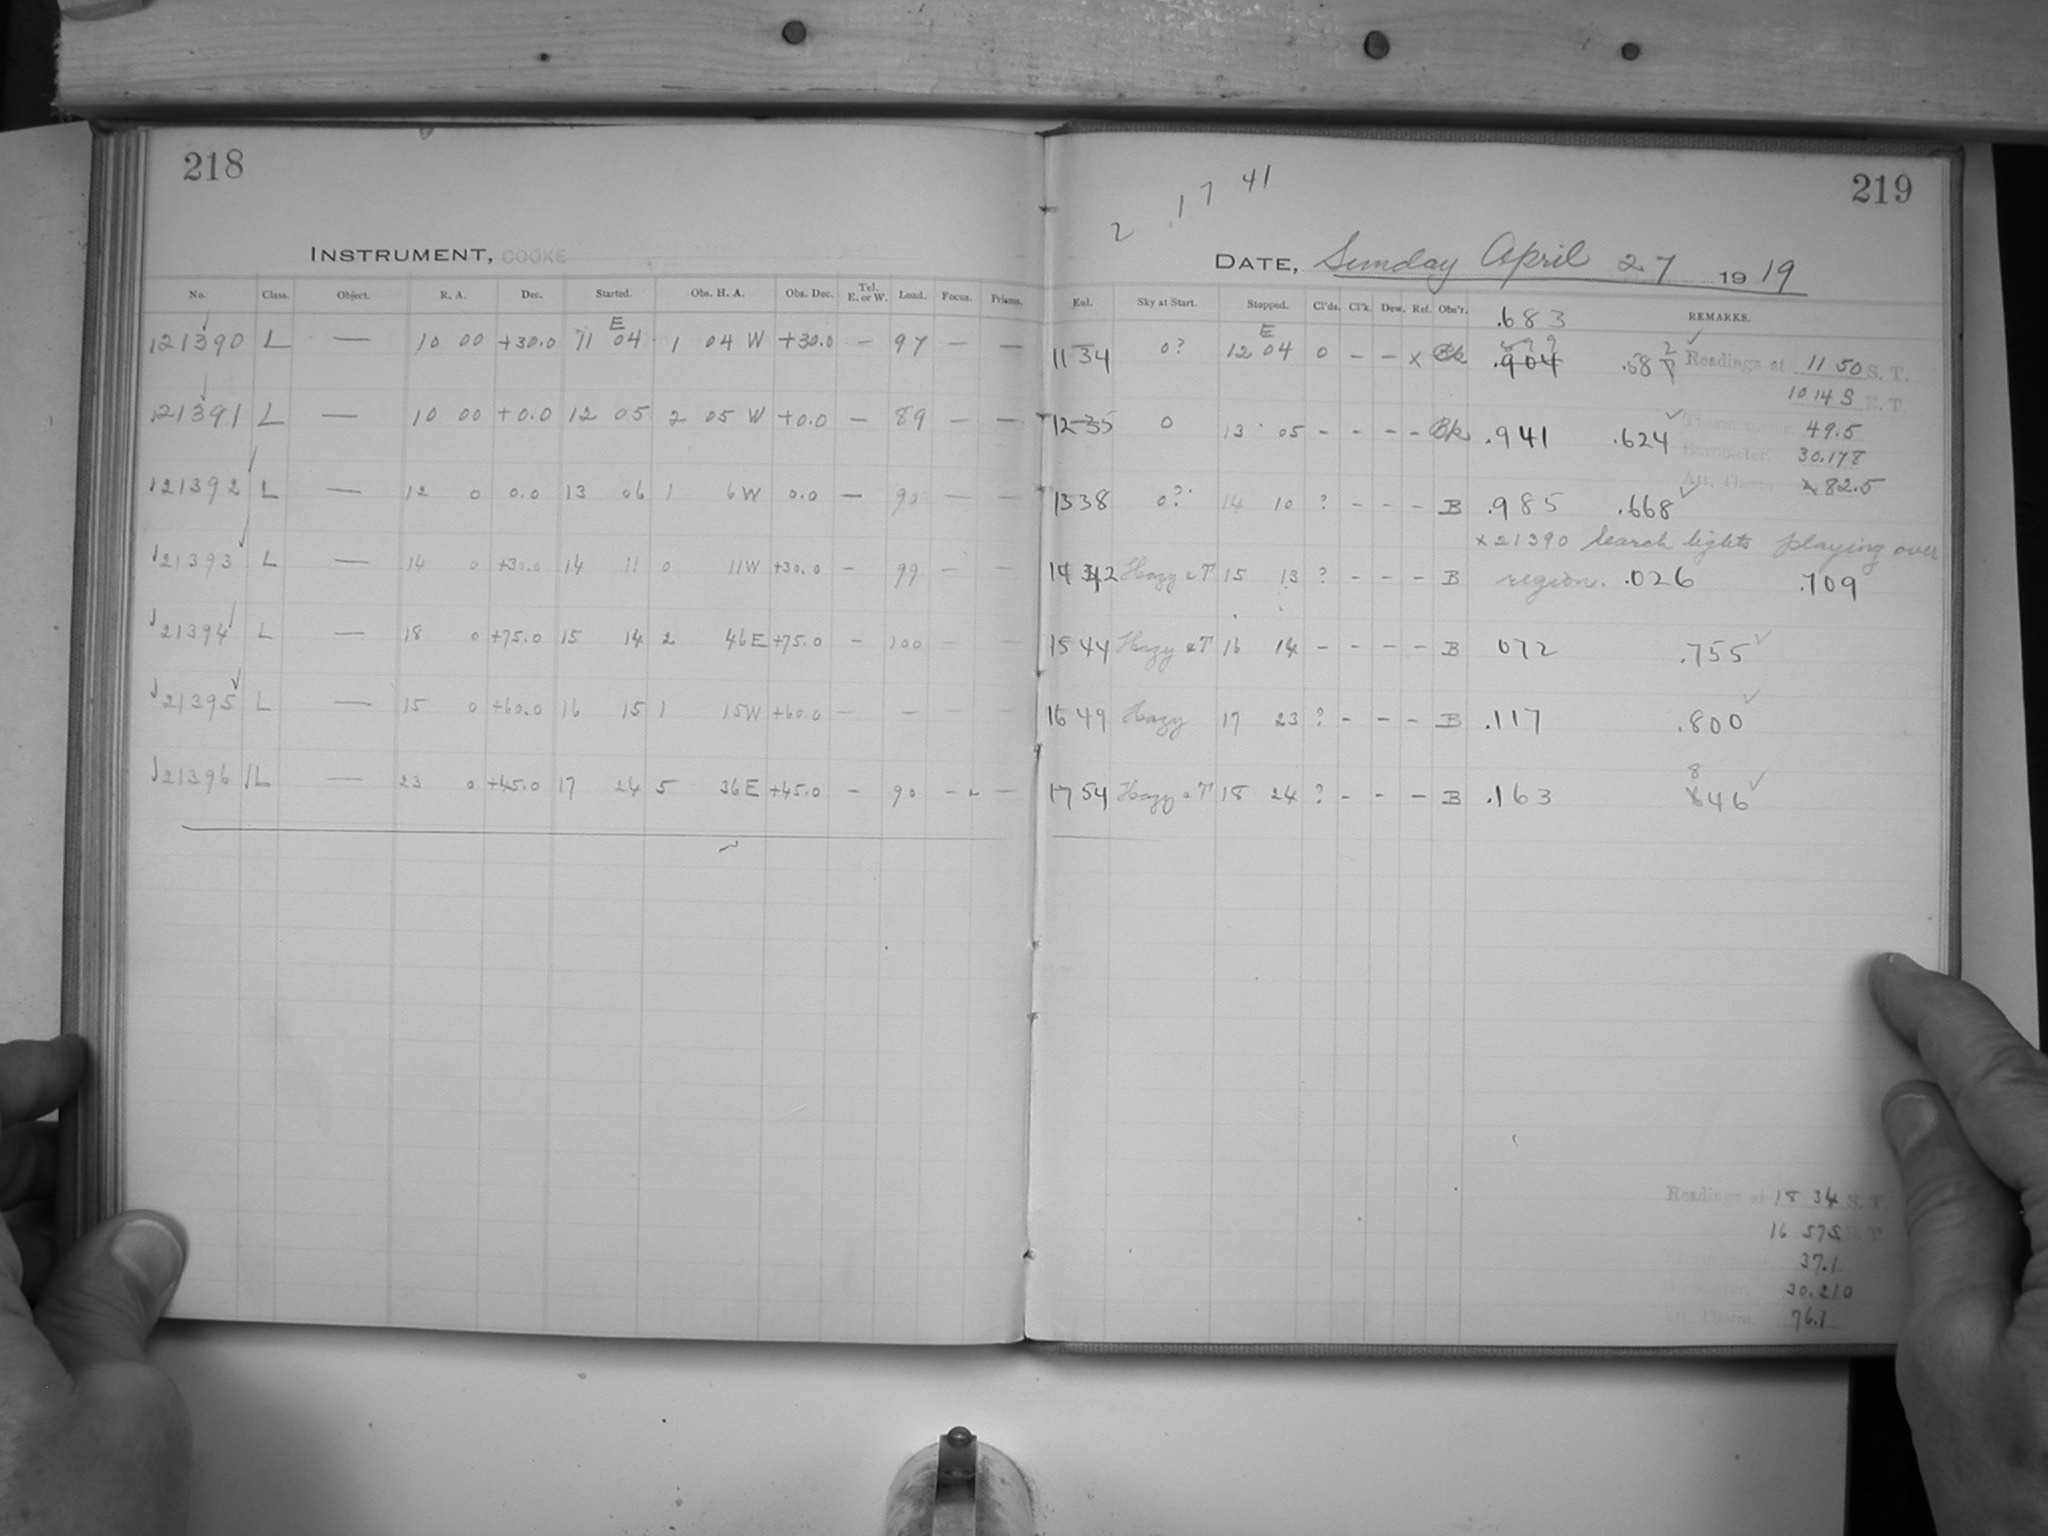 218
INSTRUMENT, COOKE
No. Class. Object. R. A. Dec. Started. Obs. H. A. Obs. Dec. Tel. E. or W. Load. Focus. Prisms.
E
21390 L — 10 00 +30.0 11 04 1 04 W +30.0 — 97 — —
21391 L — 10 00 +0.0 12 05 2 05 W +0.0 — 89 — —
21392 L — 12 0 0.0 13 06 1 6 W 0.0 — 90 — —
21393 L — 14 0 +30.0 14 11 0 11 W +30.0 — 99 — —
21394 L — 18 0 +75.0 15 14 2 46 E +75.0 — 100 — —
21395 L — 15 0 +60.0 16 15 1 15 W +60.0 — — — —
21396 L — 23 0 +45.0 17 24 5 36 E +45.0 — 90 — —
219
2 .17 41
DATE, Sunday April 27 1919
Sky at Start. Stopped. Cl'ds. Cl'k. Dew. Ref. Obs'r. REMARKS.
.683
E
11 34 0? 12 04 0 — — x .904 .68 2 Readings at 11 50 S. T.
10 14 S E. T.
12 35 0 13 05 - - - - .941 .624 ✓ 49.5
Barometer. 30.178
Att. Therm. 82.5
13 38 0? 14 10 ? - - - B .985 .668 ✓
x 21390 Search lights playing over
14 42 Hazy T 15 13 ? - - - B region. .026 .709
15 44 Hazy T 16 14 - - - - B 072 .755 ✓
16 49 Hazy 17 23 ? - - - B .117 .800 ✓
8
17 54 Hazy T 18 24 ? - - - B .163 46 ✓
Readings at 18 34 S. T.
16 57 S E. T.
37.1
Barometer. 30.210
Att. Therm. 76.1